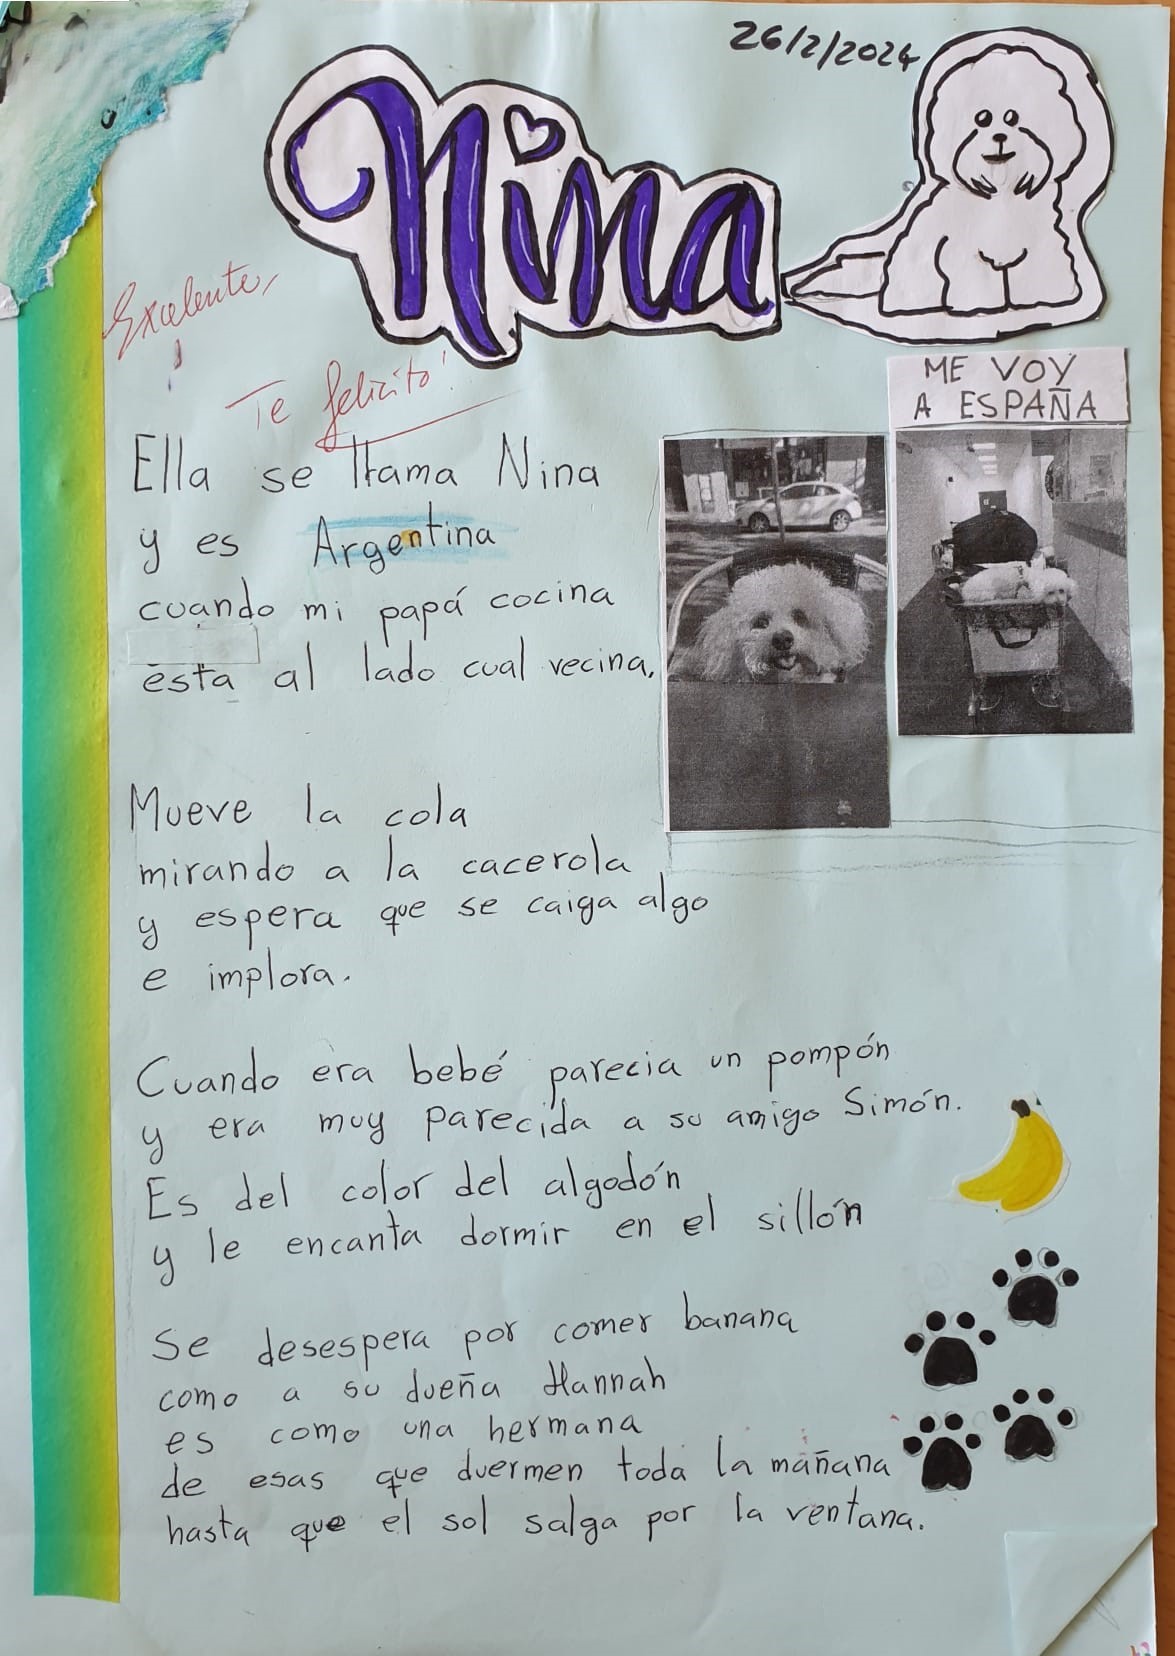 26/2/2024
Nina
Excelente,
Te felicito!
ME VOY
A ESPAÑA
Ella se llama Nina
y es Argentina
cuando mi papá cocina
esta al lado cual vecina,
Mueve la cola
mirando a la cacerola
y espera que se caiga algo
e implora.
Cuando era bebé parecia un pompón
y era muy parecida a su amigo Simón.
Es del color del algodón
y le encanta dormir en el sillón
Se desespera por comer banana
como a su dueña Hannah
es como una hermana
de esas que duermen toda la mañana
hasta que el sol salga por la ventana.